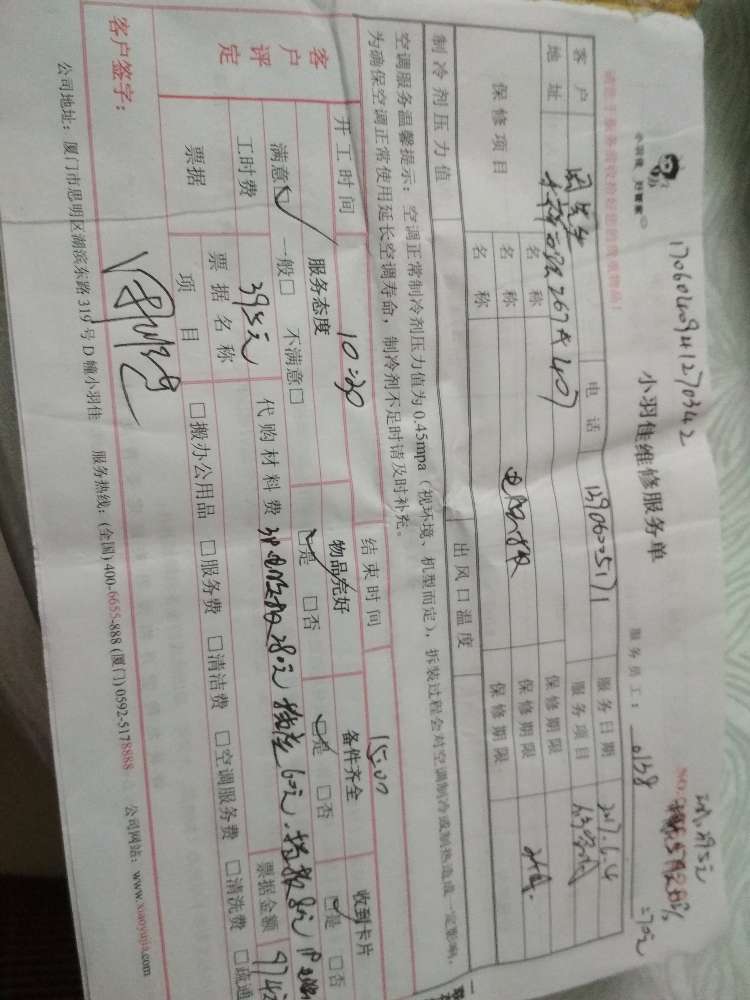 小羽佳 好管家
1706040941270342
小羽佳维修服务单
请您于服务前收捡好您的贵重物品!
服务员工: 0138
NO:
客户
电话 13906005171
服务日期 2017.6.4
地址 267号407
服务项目
保修项目
名称 保修期限
名称 电脑板 保修期限
名称 保修期限
制冷剂压力值
出风口温度
空调服务温馨提示:空调正常制冷剂压力值为0.45mpa(视环境、机型而定),拆装过程会对空调制冷或制热造成一定影响,
为确保空调正常使用延长空调寿命,制冷剂不足时请及时补充。
开工时间 10:30 结束时间 15:00
客户评定
服务态度 物品完好 备件齐全 收到卡片
满意☑ 一般□ 不满意□ ☑是 □否 ☑是 □否 ☑是 □否
工时费 395元 代购材料费 3P电脑板280元 60元
票据 票据名称 票据金额
项目 □搬办公用品 □服务费 □清洁费 □空调服务费 □清洗费 □疏通
客户签字:
公司地址:厦门市思明区湖滨东路319号D幢小羽佳 服务热线:(全国)400-6655-888 (厦门)0592-5178888 公司网站:www.xiaoyujia.com